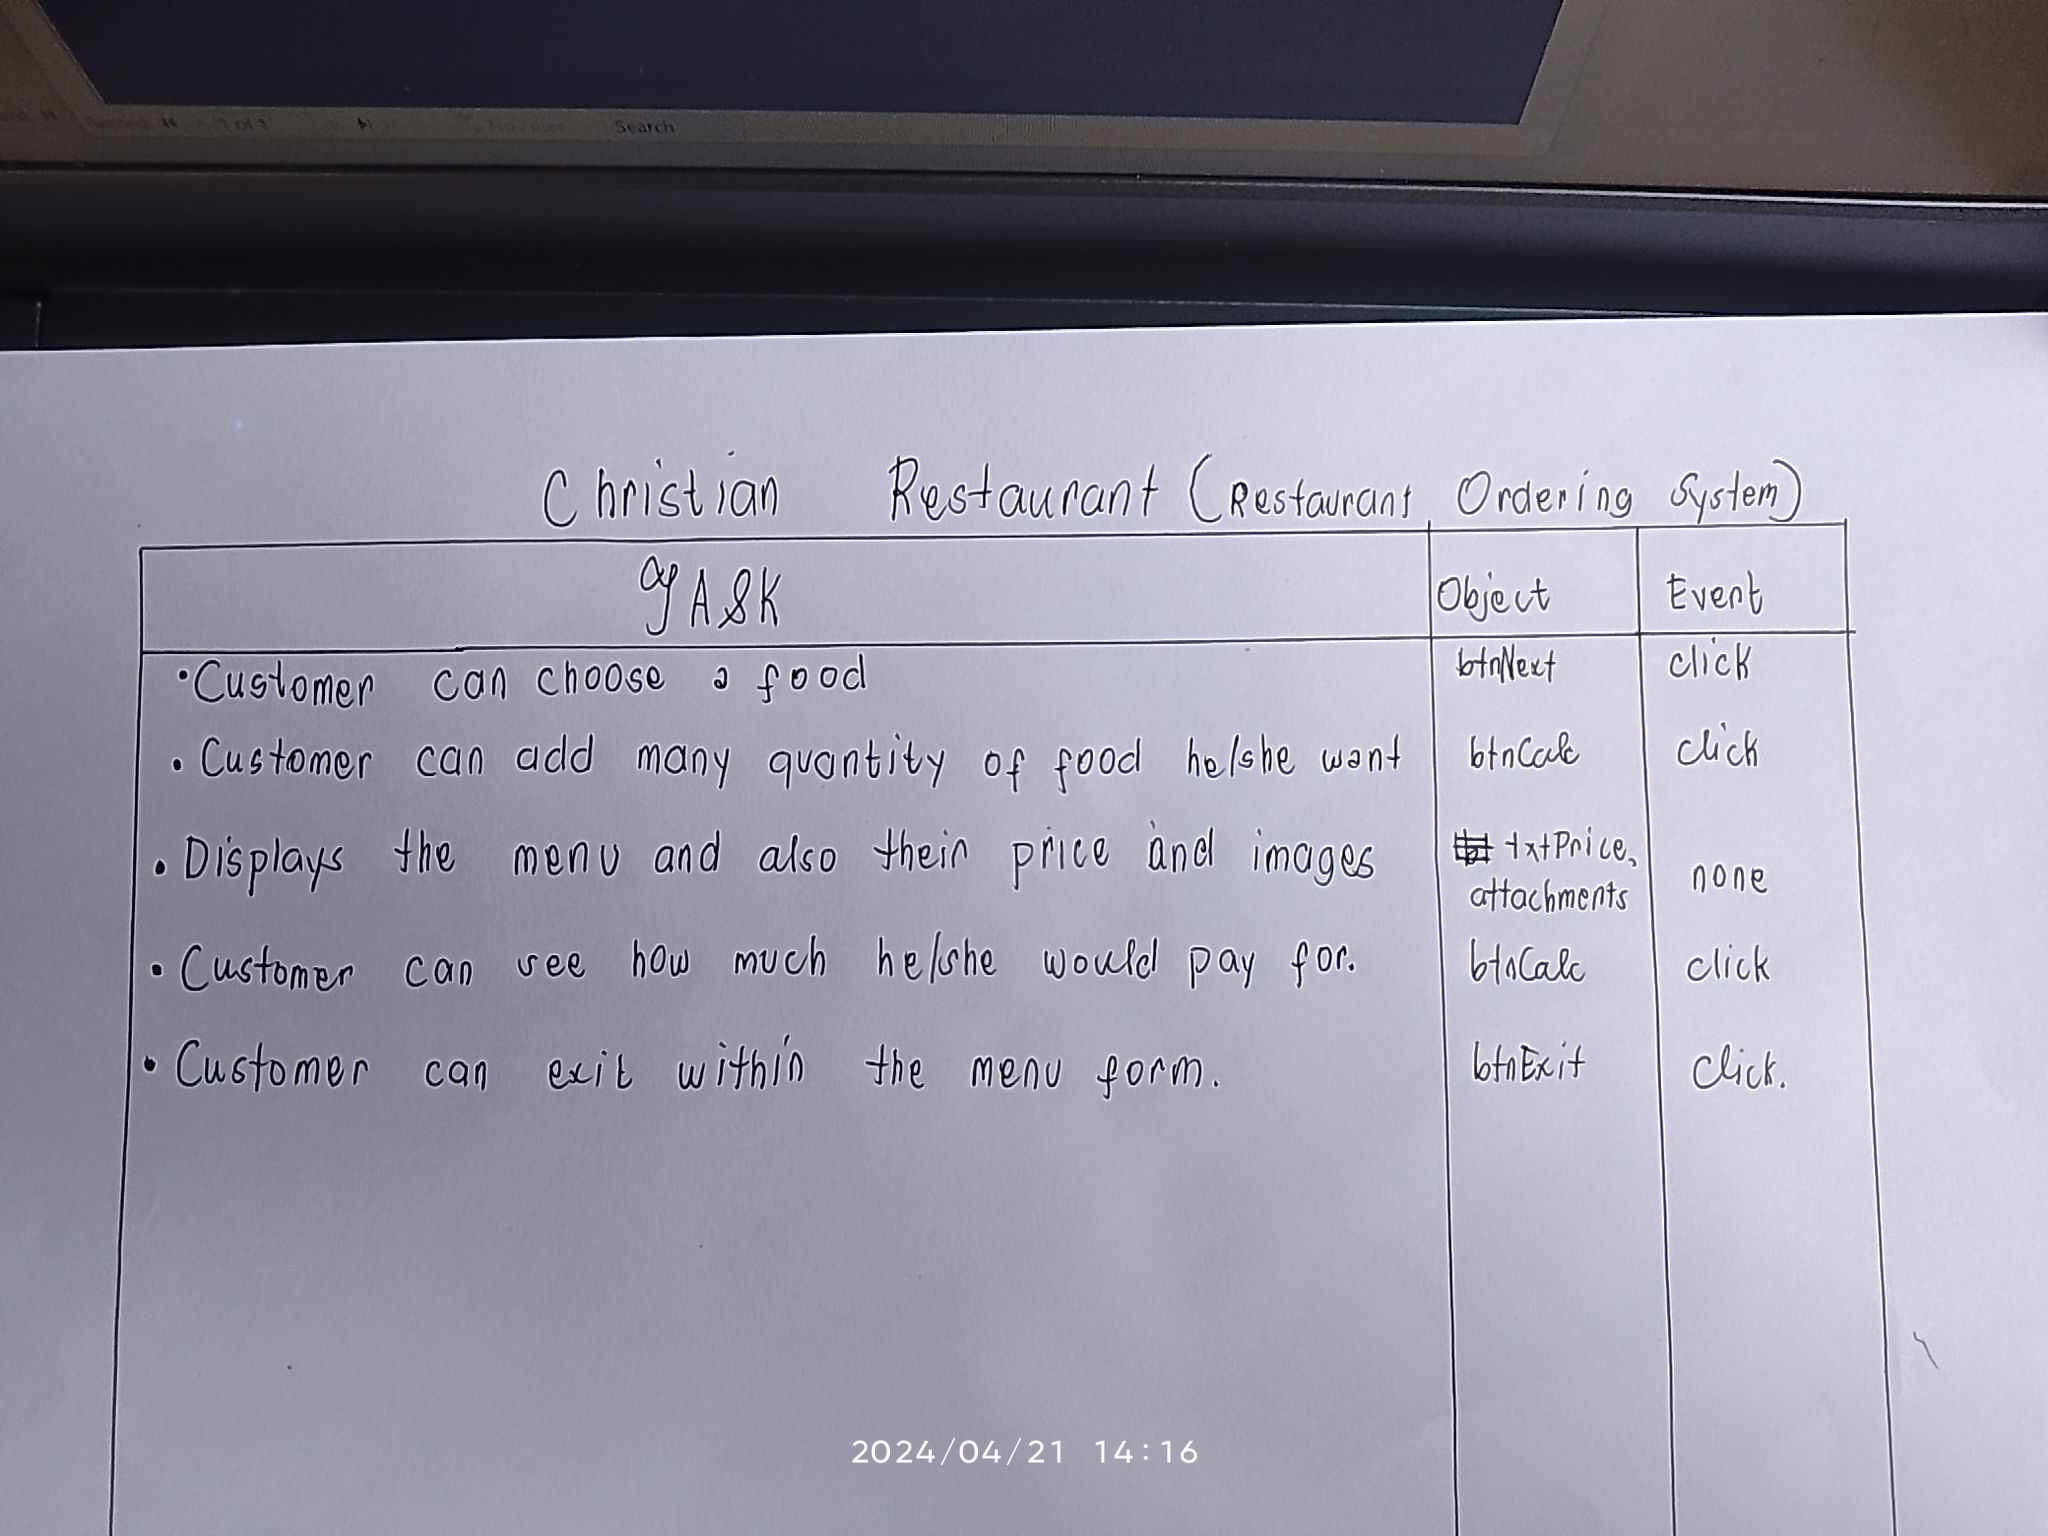 1 of 1 Search
Christian Restaurant (Restaurant Ordering System)
TASK Object Event
• Customer can choose a food btnNext click
• Customer can add many quantity of food he/she want btnCalc click
• Displays the menu and also their price and images txtPrice, attachments none
• Customer can see how much he/she would pay for. btnCalc click
• Customer can exit within the menu form. btnExit Click.
2024/04/21 14:16